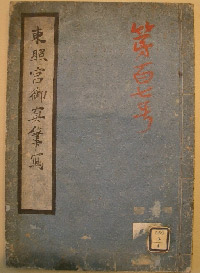 東照宮御真筆写
第百七号